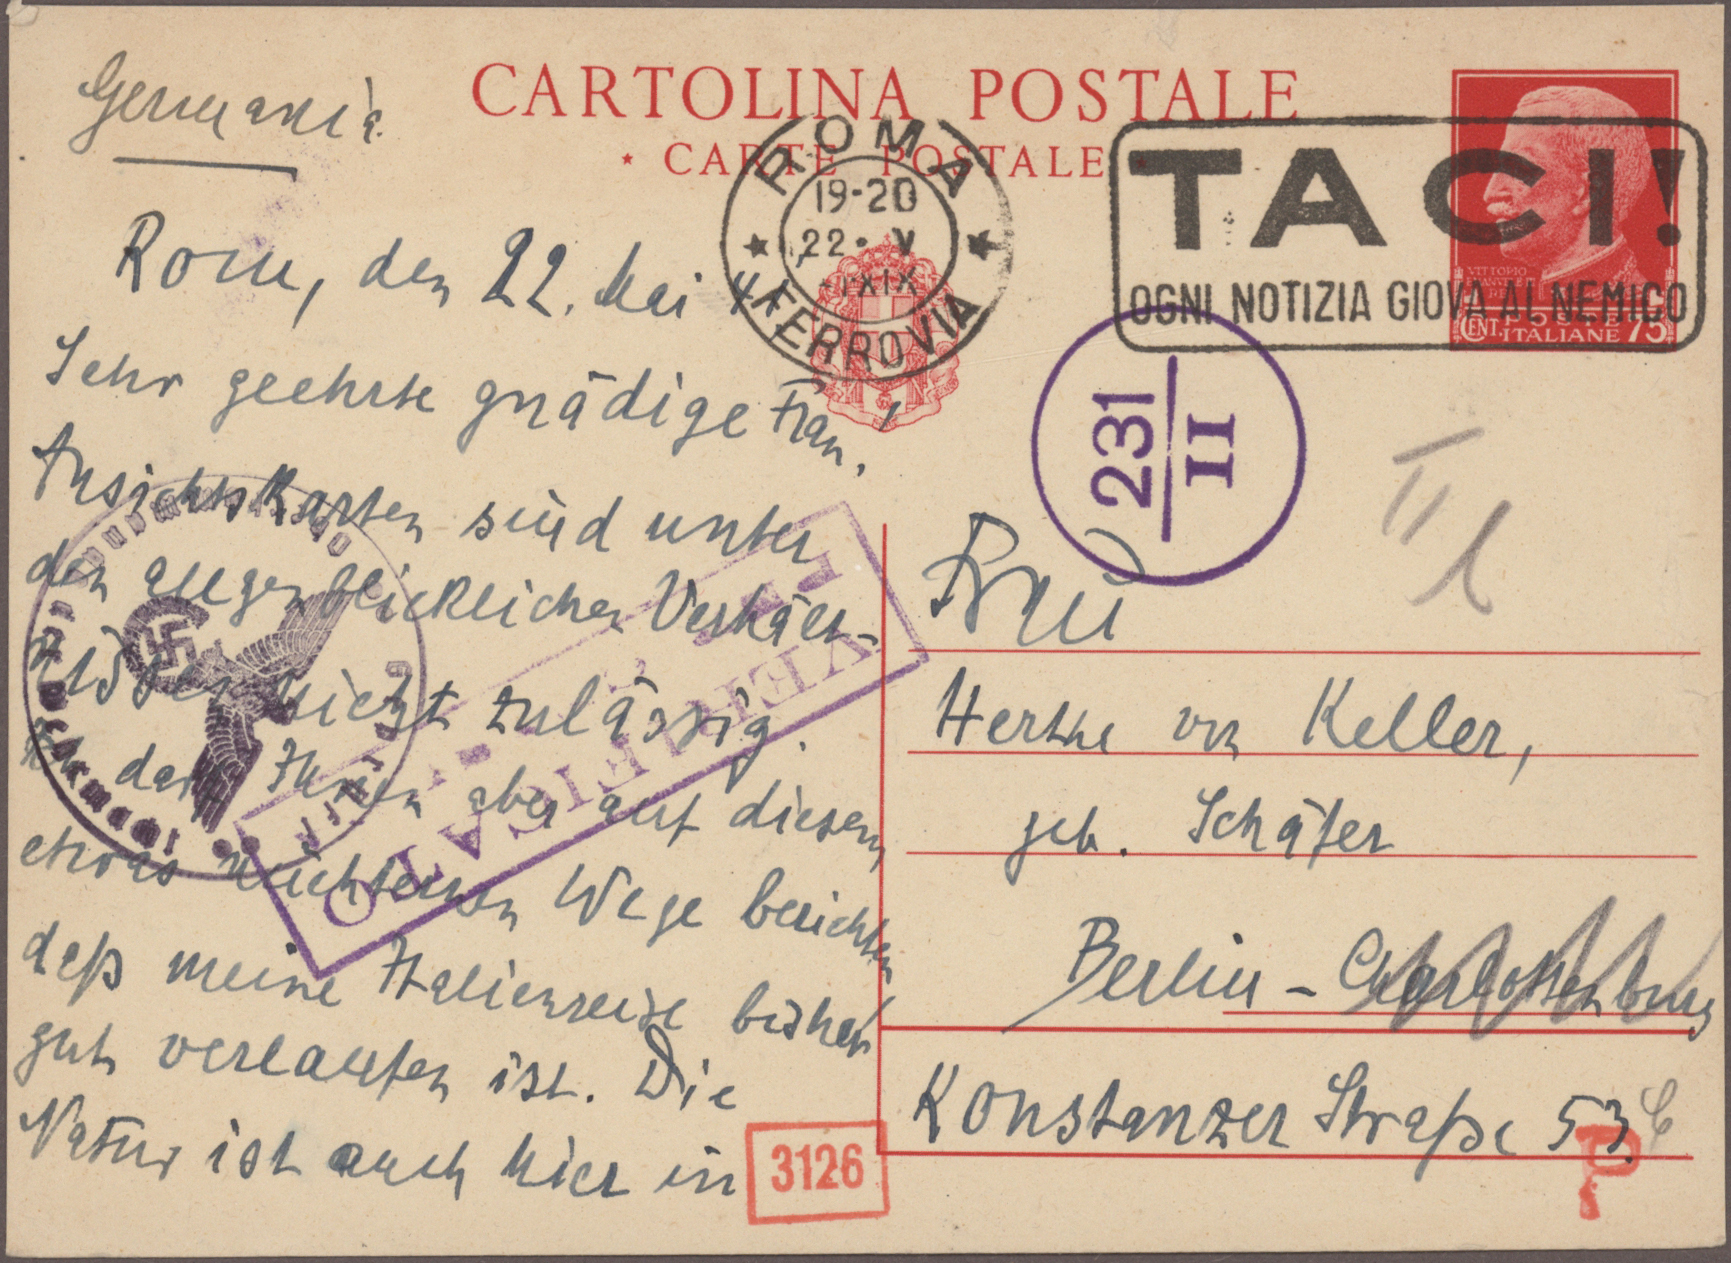 Germania
CARTOLINA POSTALE
* CARTE POSTALE
ROMA
19-20
22 · V
XIX
FERROVIA
TACI!
OGNI NOTIZIA GIOVA AL NEMICO
VITTORIO
POSTE
CENT. ITALIANE 75
231
II
Rom, den 22. Mai 41
Sehr geehrte gnädige Frau!
Ansichtskarten sind unter
den augenblicklichen Verhält-
nissen nicht zulässig.
Ich darf Ihnen aber auf diesem
etwas nüchternen Wege berichten
daß meine Italienreise bisher
gut verlaufen ist. Die
Natur ist auch hier in
VERIFICATO
PER
Wehrmacht
Frau
Herthe von Keller,
geb. Schäfer
Berlin - Charlottenburg
Konstanzer Straße 53.
3126